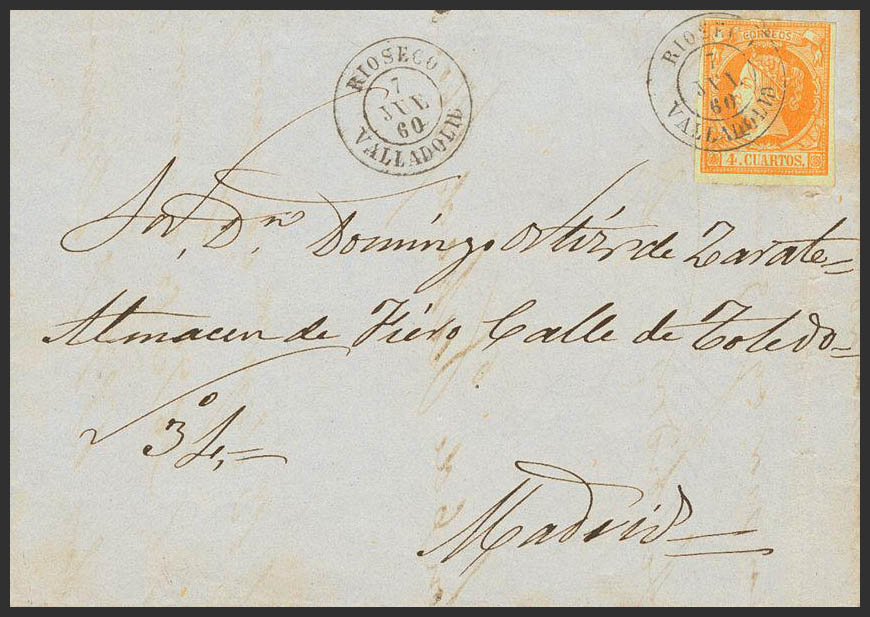 RIOSECO
7
JUE
60
VALLADOLID
RIOSECO
7
60
VALLADOLID
CORREOS
4. CUARTOS.
Sor. Dn. Domingo Ortiz de Zarate=
Almacen de Fiero Calle de Toledo=
Madrid=